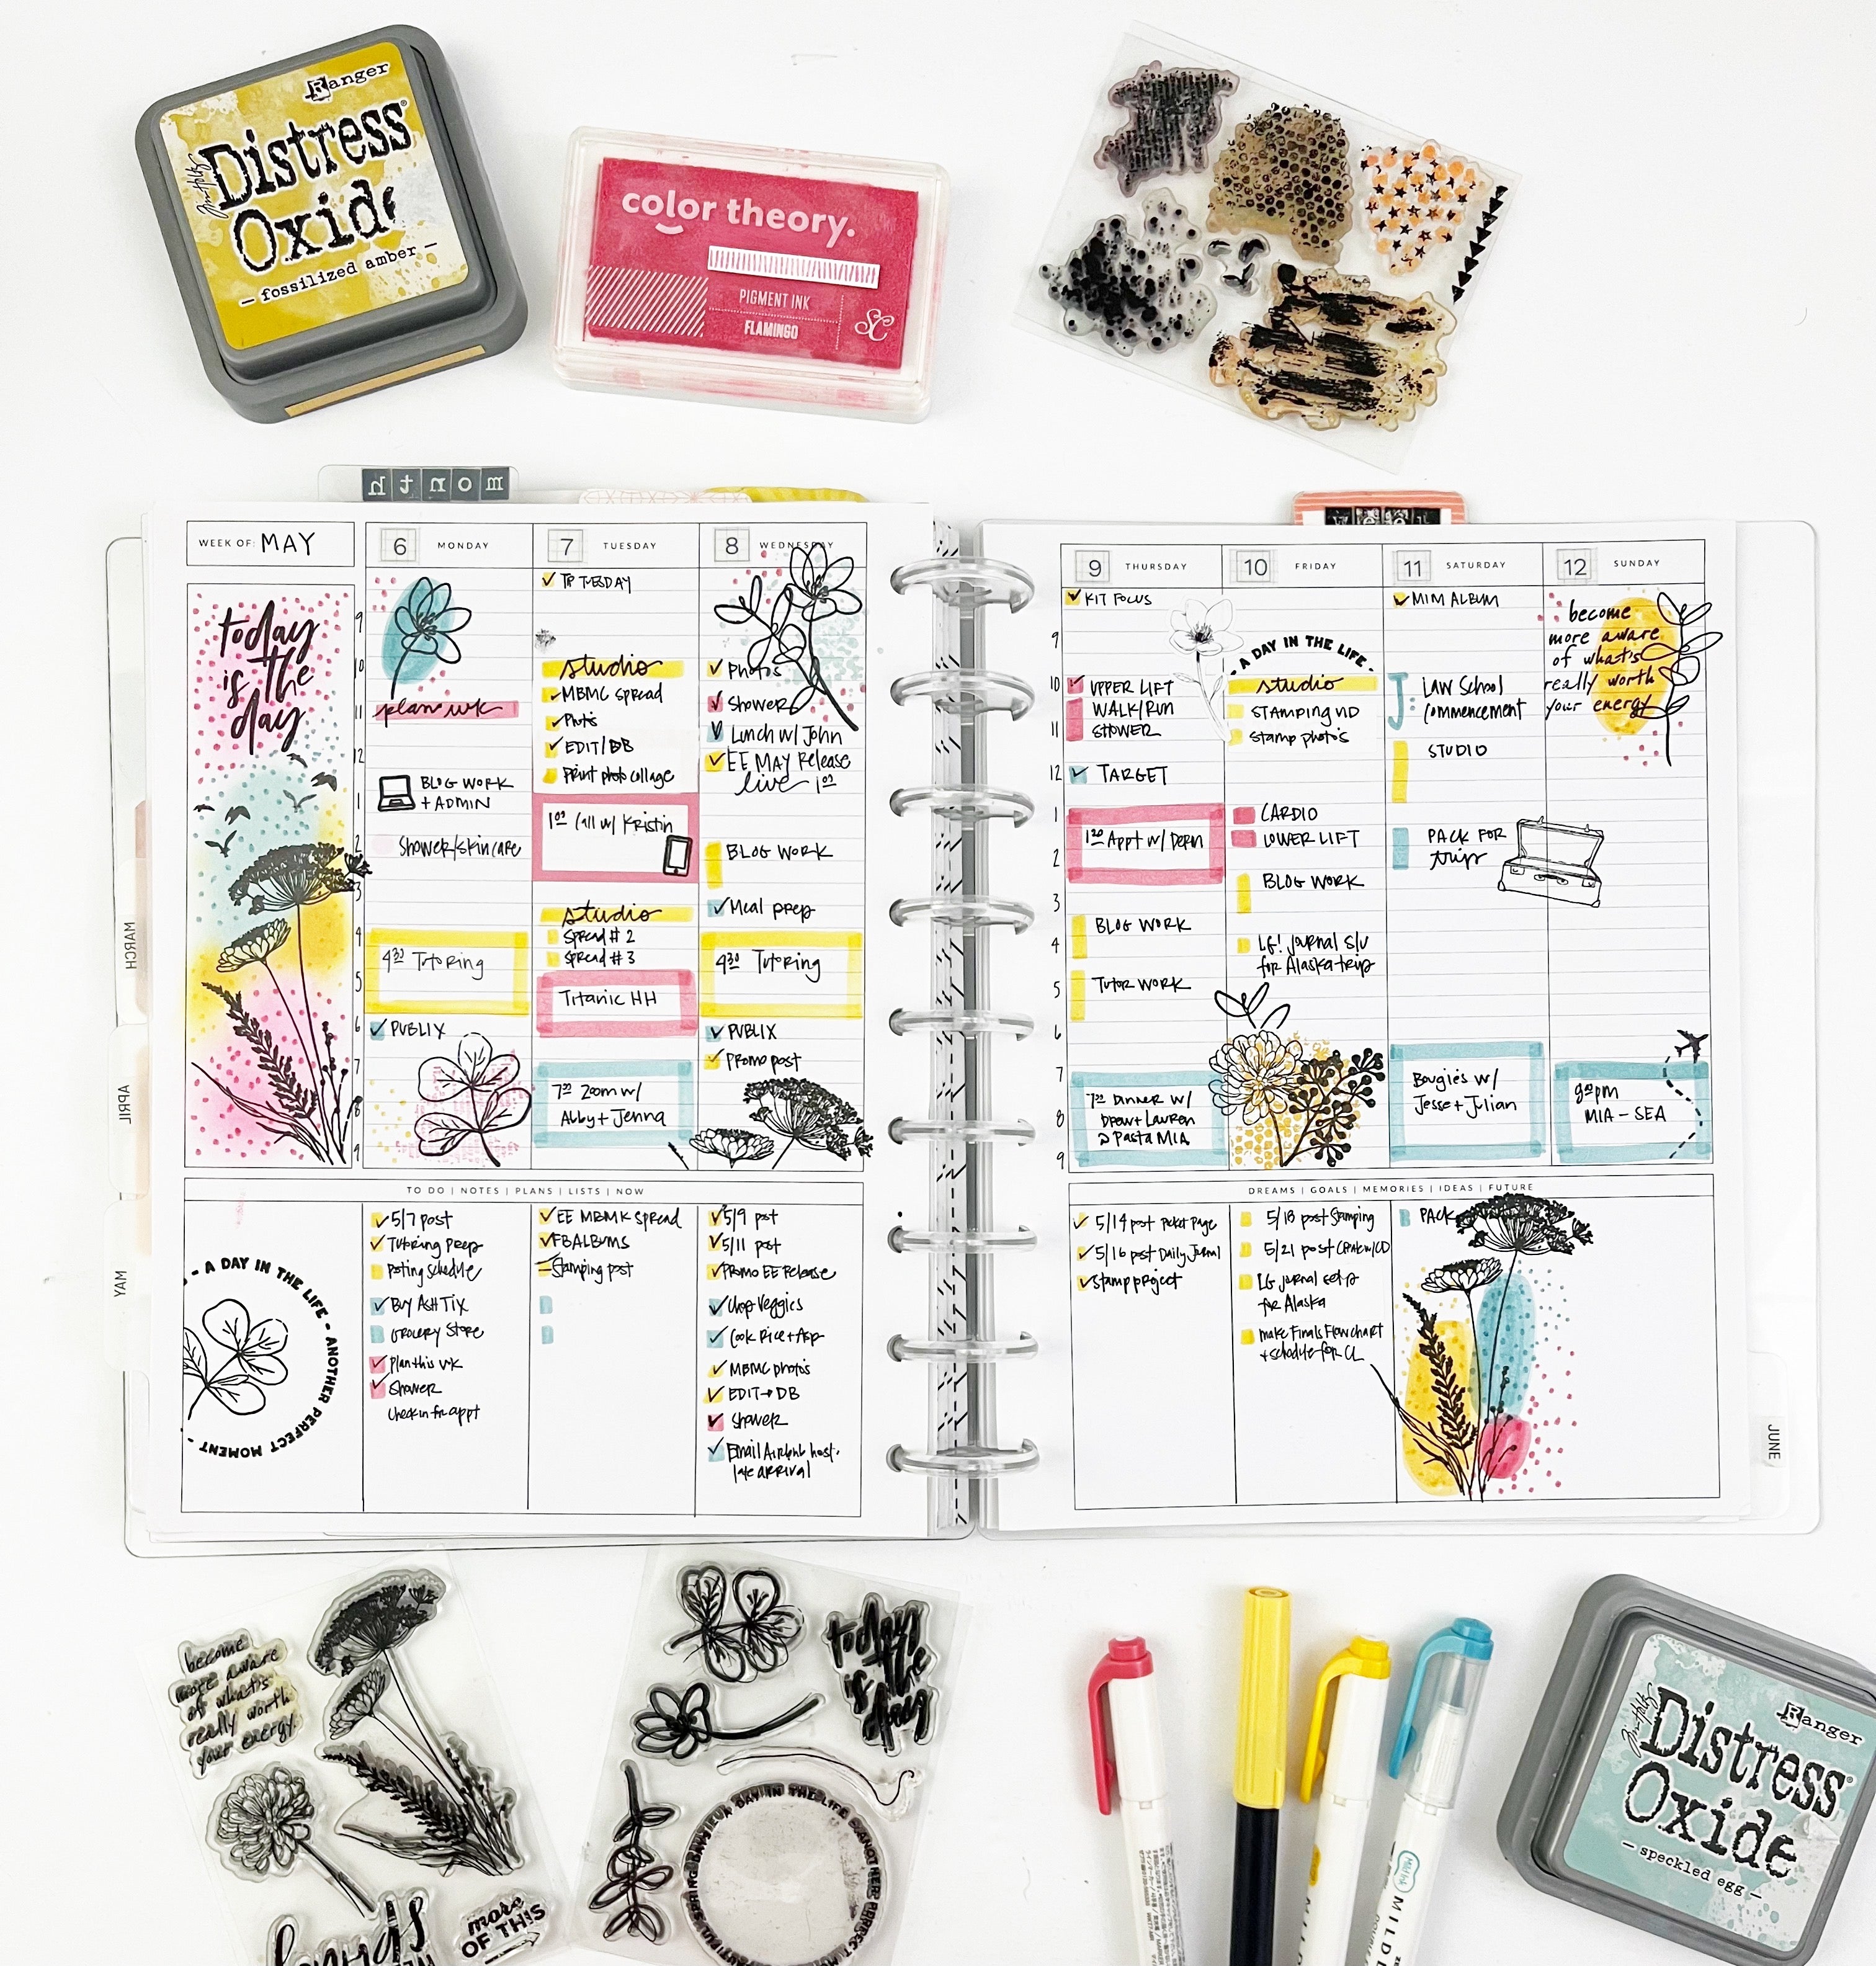 Ranger
Tim Holtz
Distress
Oxide
— fossilized amber —
color theory.
PIGMENT INK
FLAMINGO
SC
month
WEEK OF: MAY
6 MONDAY
7 TUESDAY
8 WEDNESDAY
today
is the
day
9
10
11
12
1
2
3
4
5
6
7
8
9
plan wk
BLOG WORK
+ ADMIN
Shower/skincare
4:30 Tutoring
PUBLIX
TP TUESDAY
studio
MBMC spread
EDIT/DB
Print photo collage
1:00 Call w/ Kristin
studio
Spread #2
Spread #3
Titanic HH
7:00 Zoom w/
Abby + Jenna
Photos
Shower
Lunch w/ John
EE MAY Release
live 1:00
BLOG WORK
Meal prep
4:30 Tutoring
PUBLIX
Promo post
TO DO | NOTES | PLANS | LISTS | NOW
- A DAY IN THE LIFE - ANOTHER PERFECT MOMENT -
5/7 post
Tutoring Prep
Posting schedule
Buy Ash Tix
Grocery Store
Plan this wk
Shower
Check in for appt
EE MBMK spread
FB ALBUMS
Stamping post
5/9 post
5/11 post
Promo EE Release
Chop Veggies
Cook Rice + Asp
MBMC photos
EDIT → DB
Shower
Email Airbnb host-
late arrival
9 THURSDAY
10 FRIDAY
11 SATURDAY
12 SUNDAY
9
10
11
12
1
2
3
4
5
6
7
8
9
KIT FOCUS
UPPER LIFT
WALK/RUN
SHOWER
TARGET
BLOG WORK
TUTOR WORK
7:00 Dinner w/
Drew + Lauren
@ Pasta MIA
- A DAY IN THE LIFE -
studio
STAMPING VID
Stamp photos
CARDIO
LOWER LIFT
BLOG WORK
LG! Journal s/u
for Alaska trip
MIM ALBUM
LAW School
Commencement
STUDIO
PACK FOR
trip
Bougie's w/
Jesse + Julian
become
more aware
of what's
really worth
your energy
9:20pm
MIA - SEA
DREAMS | GOALS | MEMORIES | IDEAS | FUTURE
5/14 post Pocket Page
5/16 post Daily Journal
Stamp project
5/18 post Stamping
LG journal set up
for Alaska
make Finals Flowchart
+ schedule for CL
PACK
MARCH
APRIL
MAY
JUNE
become
more aware
of what's
really worth
your energy.
more
OF THIS
today
is the
day
Tim Holtz
Ranger
Distress
Oxide
— speckled egg —